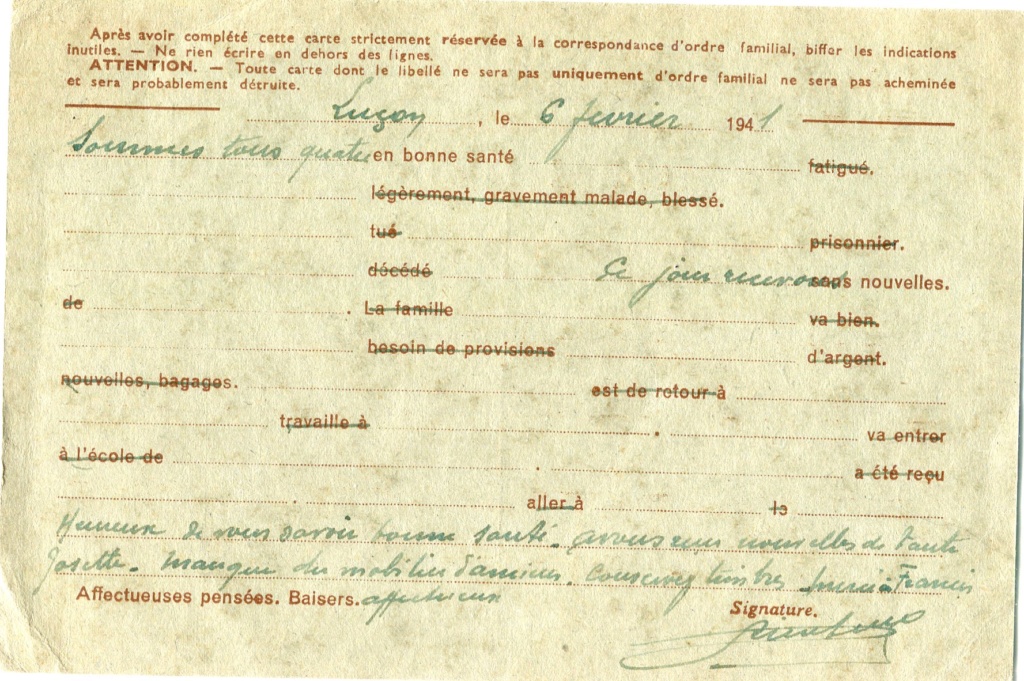 Après avoir complété cette carte strictement réservée à la correspondance d'ordre familial, biffer les indications
inutiles. — Ne rien écrire en dehors des lignes.
ATTENTION. — Toute carte dont le libellé ne sera pas uniquement d'ordre familial ne sera pas acheminée
et sera probablement détruite.
Luçon, le 6 février 1941
Sommes tous quatre en bonne santé fatigué.
légèrement, gravement malade, blessé.
tué prisonnier.
décédé Ce jour recevons sans nouvelles.
de . La famille va bien.
besoin de provisions d'argent.
nouvelles, bagages. est de retour à
travaille à . va entrer
à l'école de . a été reçu
. aller à le
Heureux de vous savoir bonne santé. avons reçu nouvelles de tante
Josette. manque du mobilier d'Amiens. Conservez timbres merci à Francis
Affectueuses pensées. Baisers. affectueux
Signature.